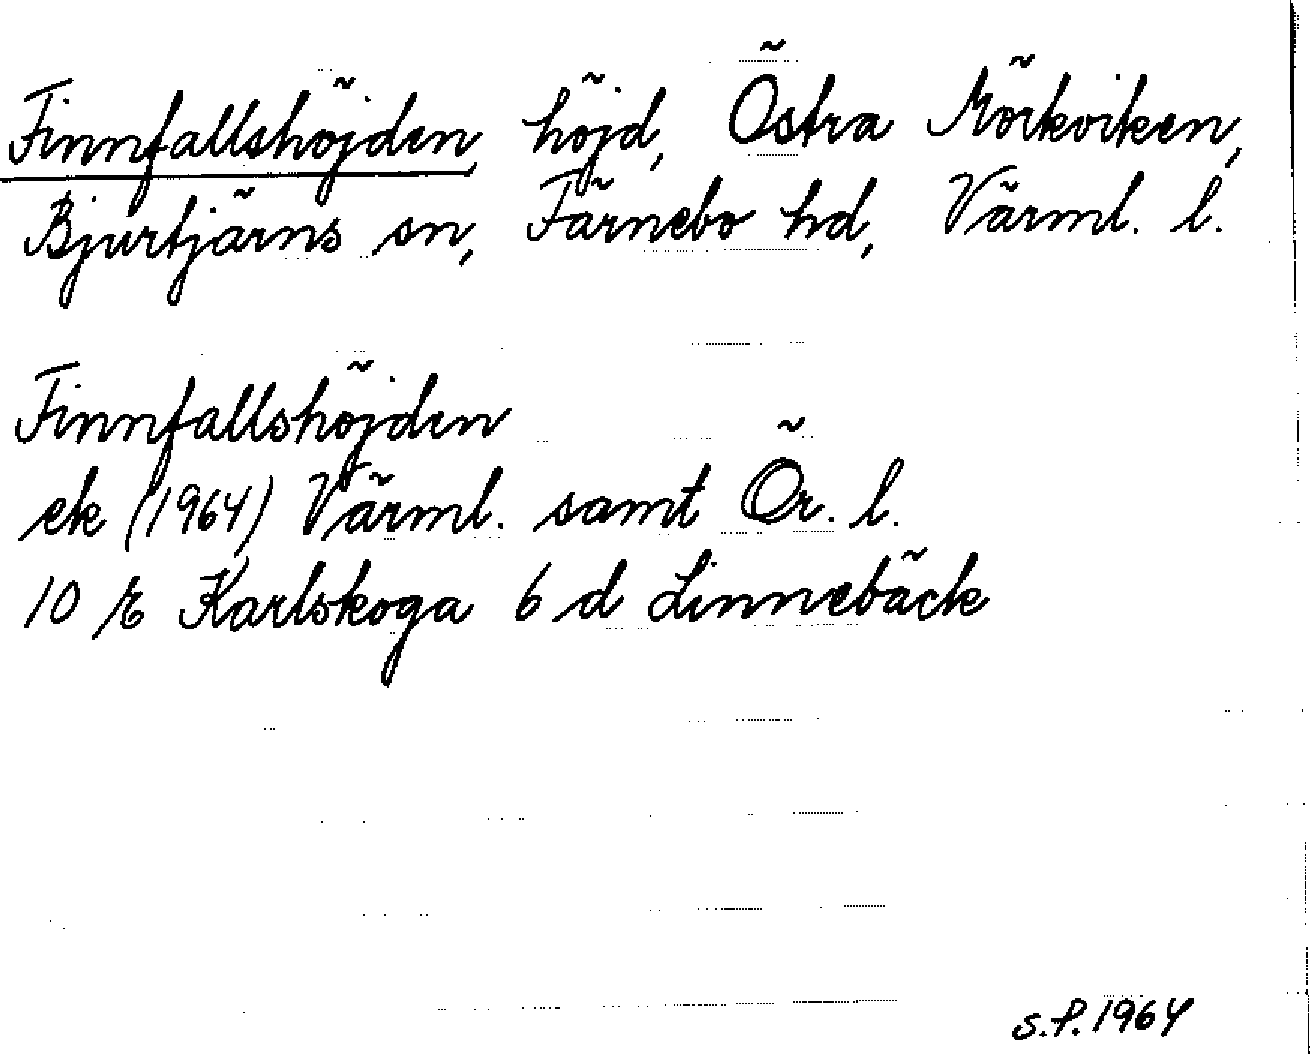 Finnfallshöjden, höjd, Östra Mörkviken,
Bjurtjärns sn, Färnebo hd, Värml. l.
Finnfallshöjden
ek (1964) Värml. samt Ör. l.
10 E Karlskoga 6 d Linnebäck
S.P. 1964